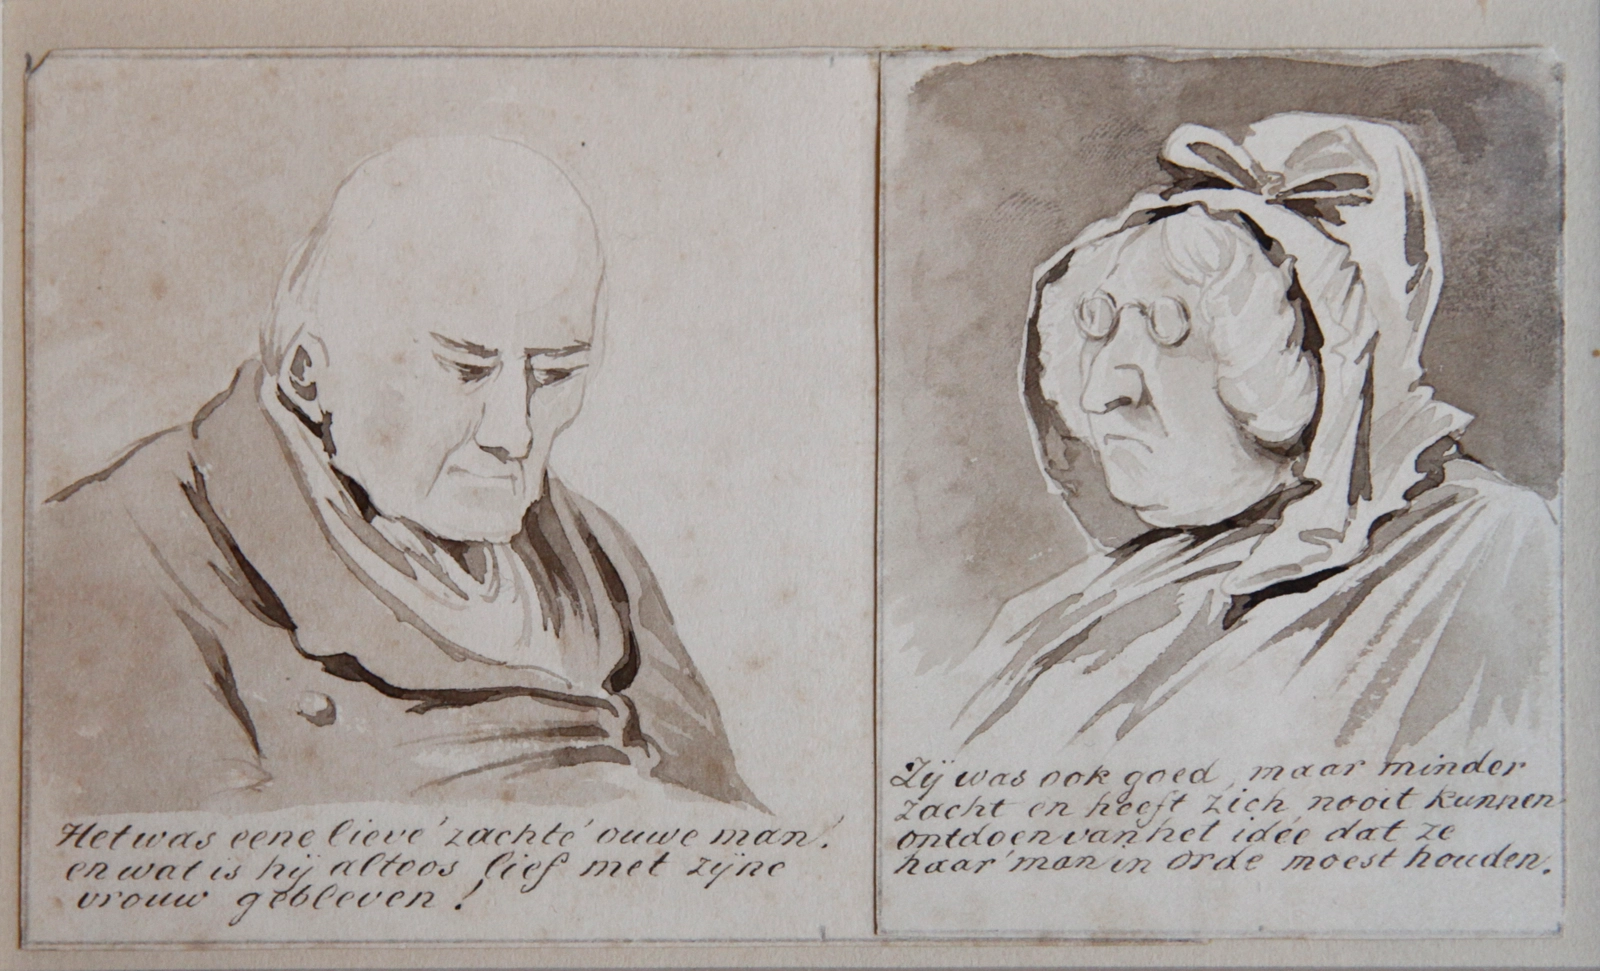 Het was eene lieve zachte ouwe man!
en wat is hij alteos lief met zijne
vrouw gebleven!
Zij was ook goed, maar minder
zacht en heeft zich nooit kunnen
ontdoen van het idée dat ze
haar man in orde moest houden.